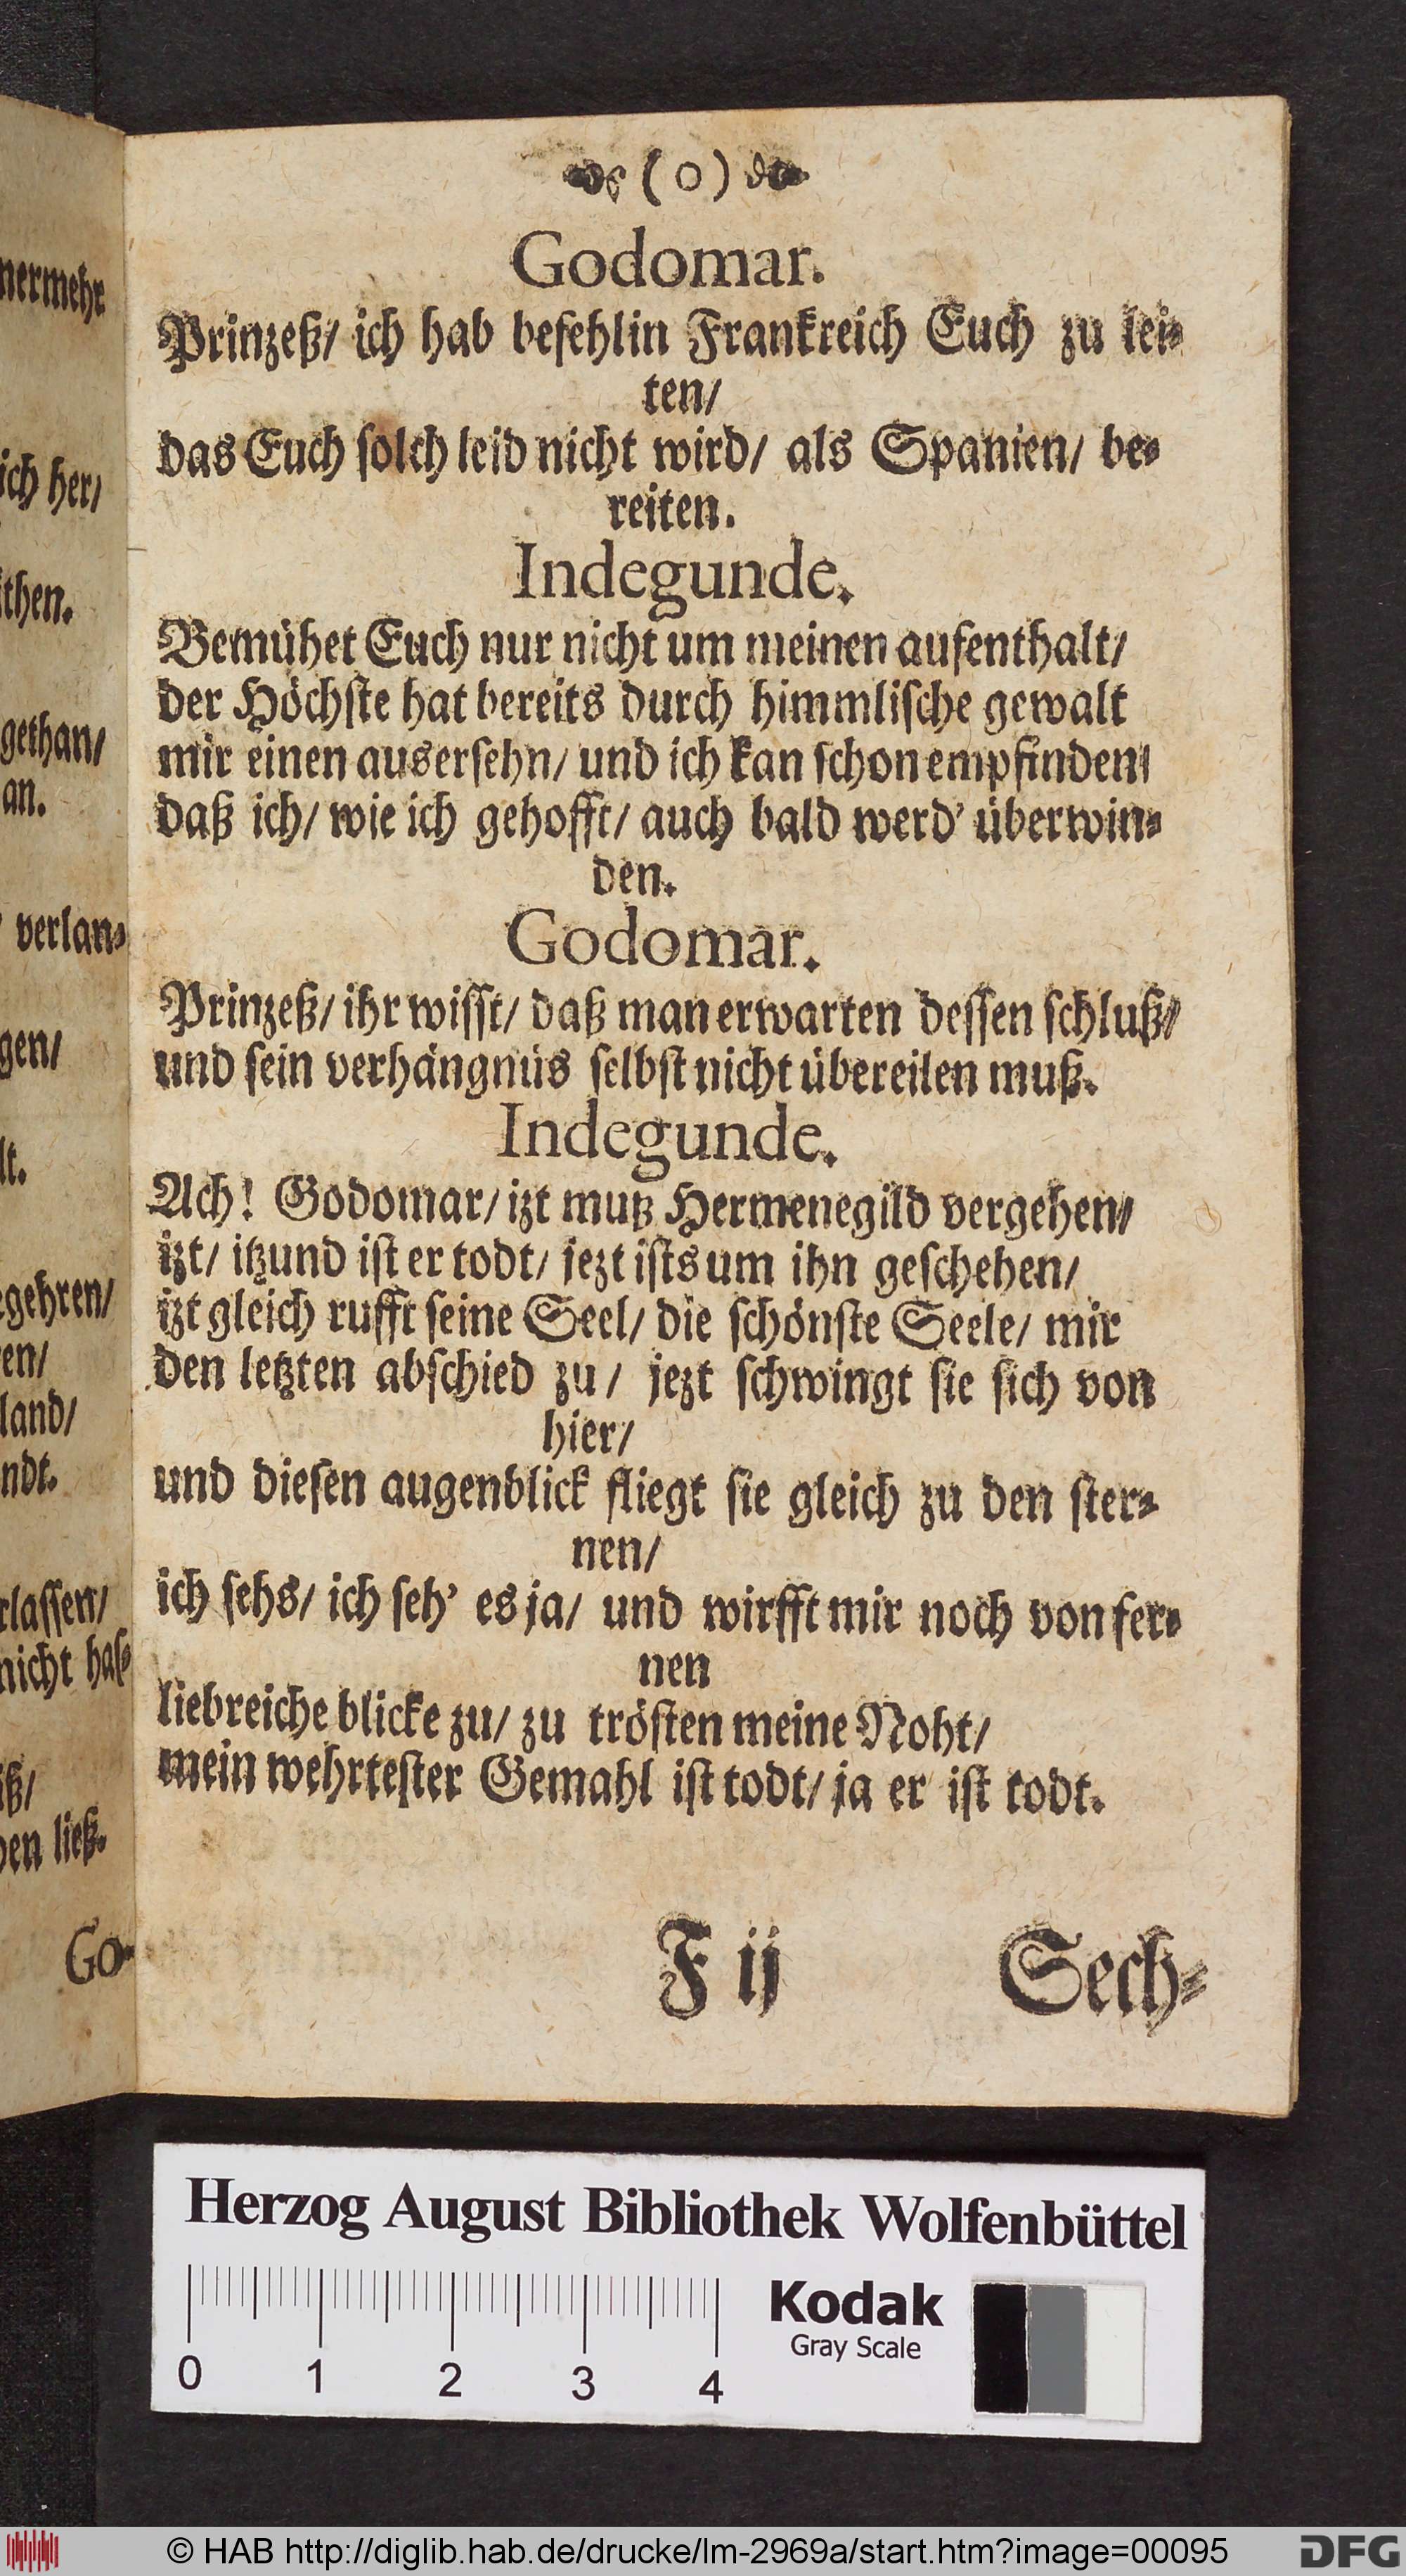 ( o )
Godomar.
Prinzeß/ ich hab befehlin Frankreich Euch zu lei-
ten/
das Euch ſolch leid nicht wird/ als Spanien/ be-
reiten.
Indegunde.
Bemühet Euch nur nicht um meinen aufenthalt/
der Höchſte hat bereits durch himmliſche gewalt
mir einen auserſehn/ und ich kan ſchon empfinden/
daß ich/ wie ich gehofft/ auch bald werd' überwin-
den.
Godomar.
Prinzeß/ ihr wiſſt/ daß man erwarten deſſen ſchluß/
und ſein verhängnüs ſelbſt nicht übereilen muß.
Indegunde.
Ach! Godomar/ izt mutz Hermenegild vergehen/
izt/ itzund iſt er todt/ jezt iſts um ihn geſchehen/
izt gleich rufft ſeine Seel/ die ſchönſte Seele/ mir
den letzten abſchied zu/ jezt ſchwingt ſie ſich von
hier/
und dieſen augenblick fliegt ſie gleich zu den ſter-
nen/
ich ſehs/ ich ſeh' es ja/ und wirfft mir noch von fer-
nen
liebreiche blicke zu/ zu tröſten meine Noht/
mein wehrteſter Gemahl iſt todt/ ja er iſt todt.
F ij
Sech-
nermehr
ich her/
then.
gethan/
an.
verlan-
gen/
lt.
egehren/
en/
land/
ndt.
rlaſſen/
nicht haſ-
iß/
ben ließ.
Go-
Herzog August Bibliothek Wolfenbüttel
Kodak
Gray Scale
0 1 2 3 4
© HAB http://diglib.hab.de/drucke/lm-2969a/start.htm?image=00095
DFG